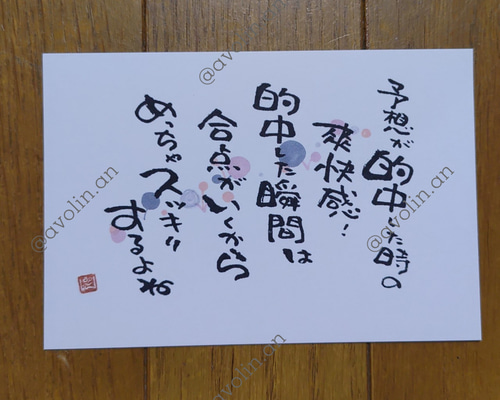 予想が的中した時の
爽快感!
的中した瞬間は
合点がいくから
めっちゃスッキリ
するよね
@avolin.an
@avolin.an
@avolin.an
@avolin.an